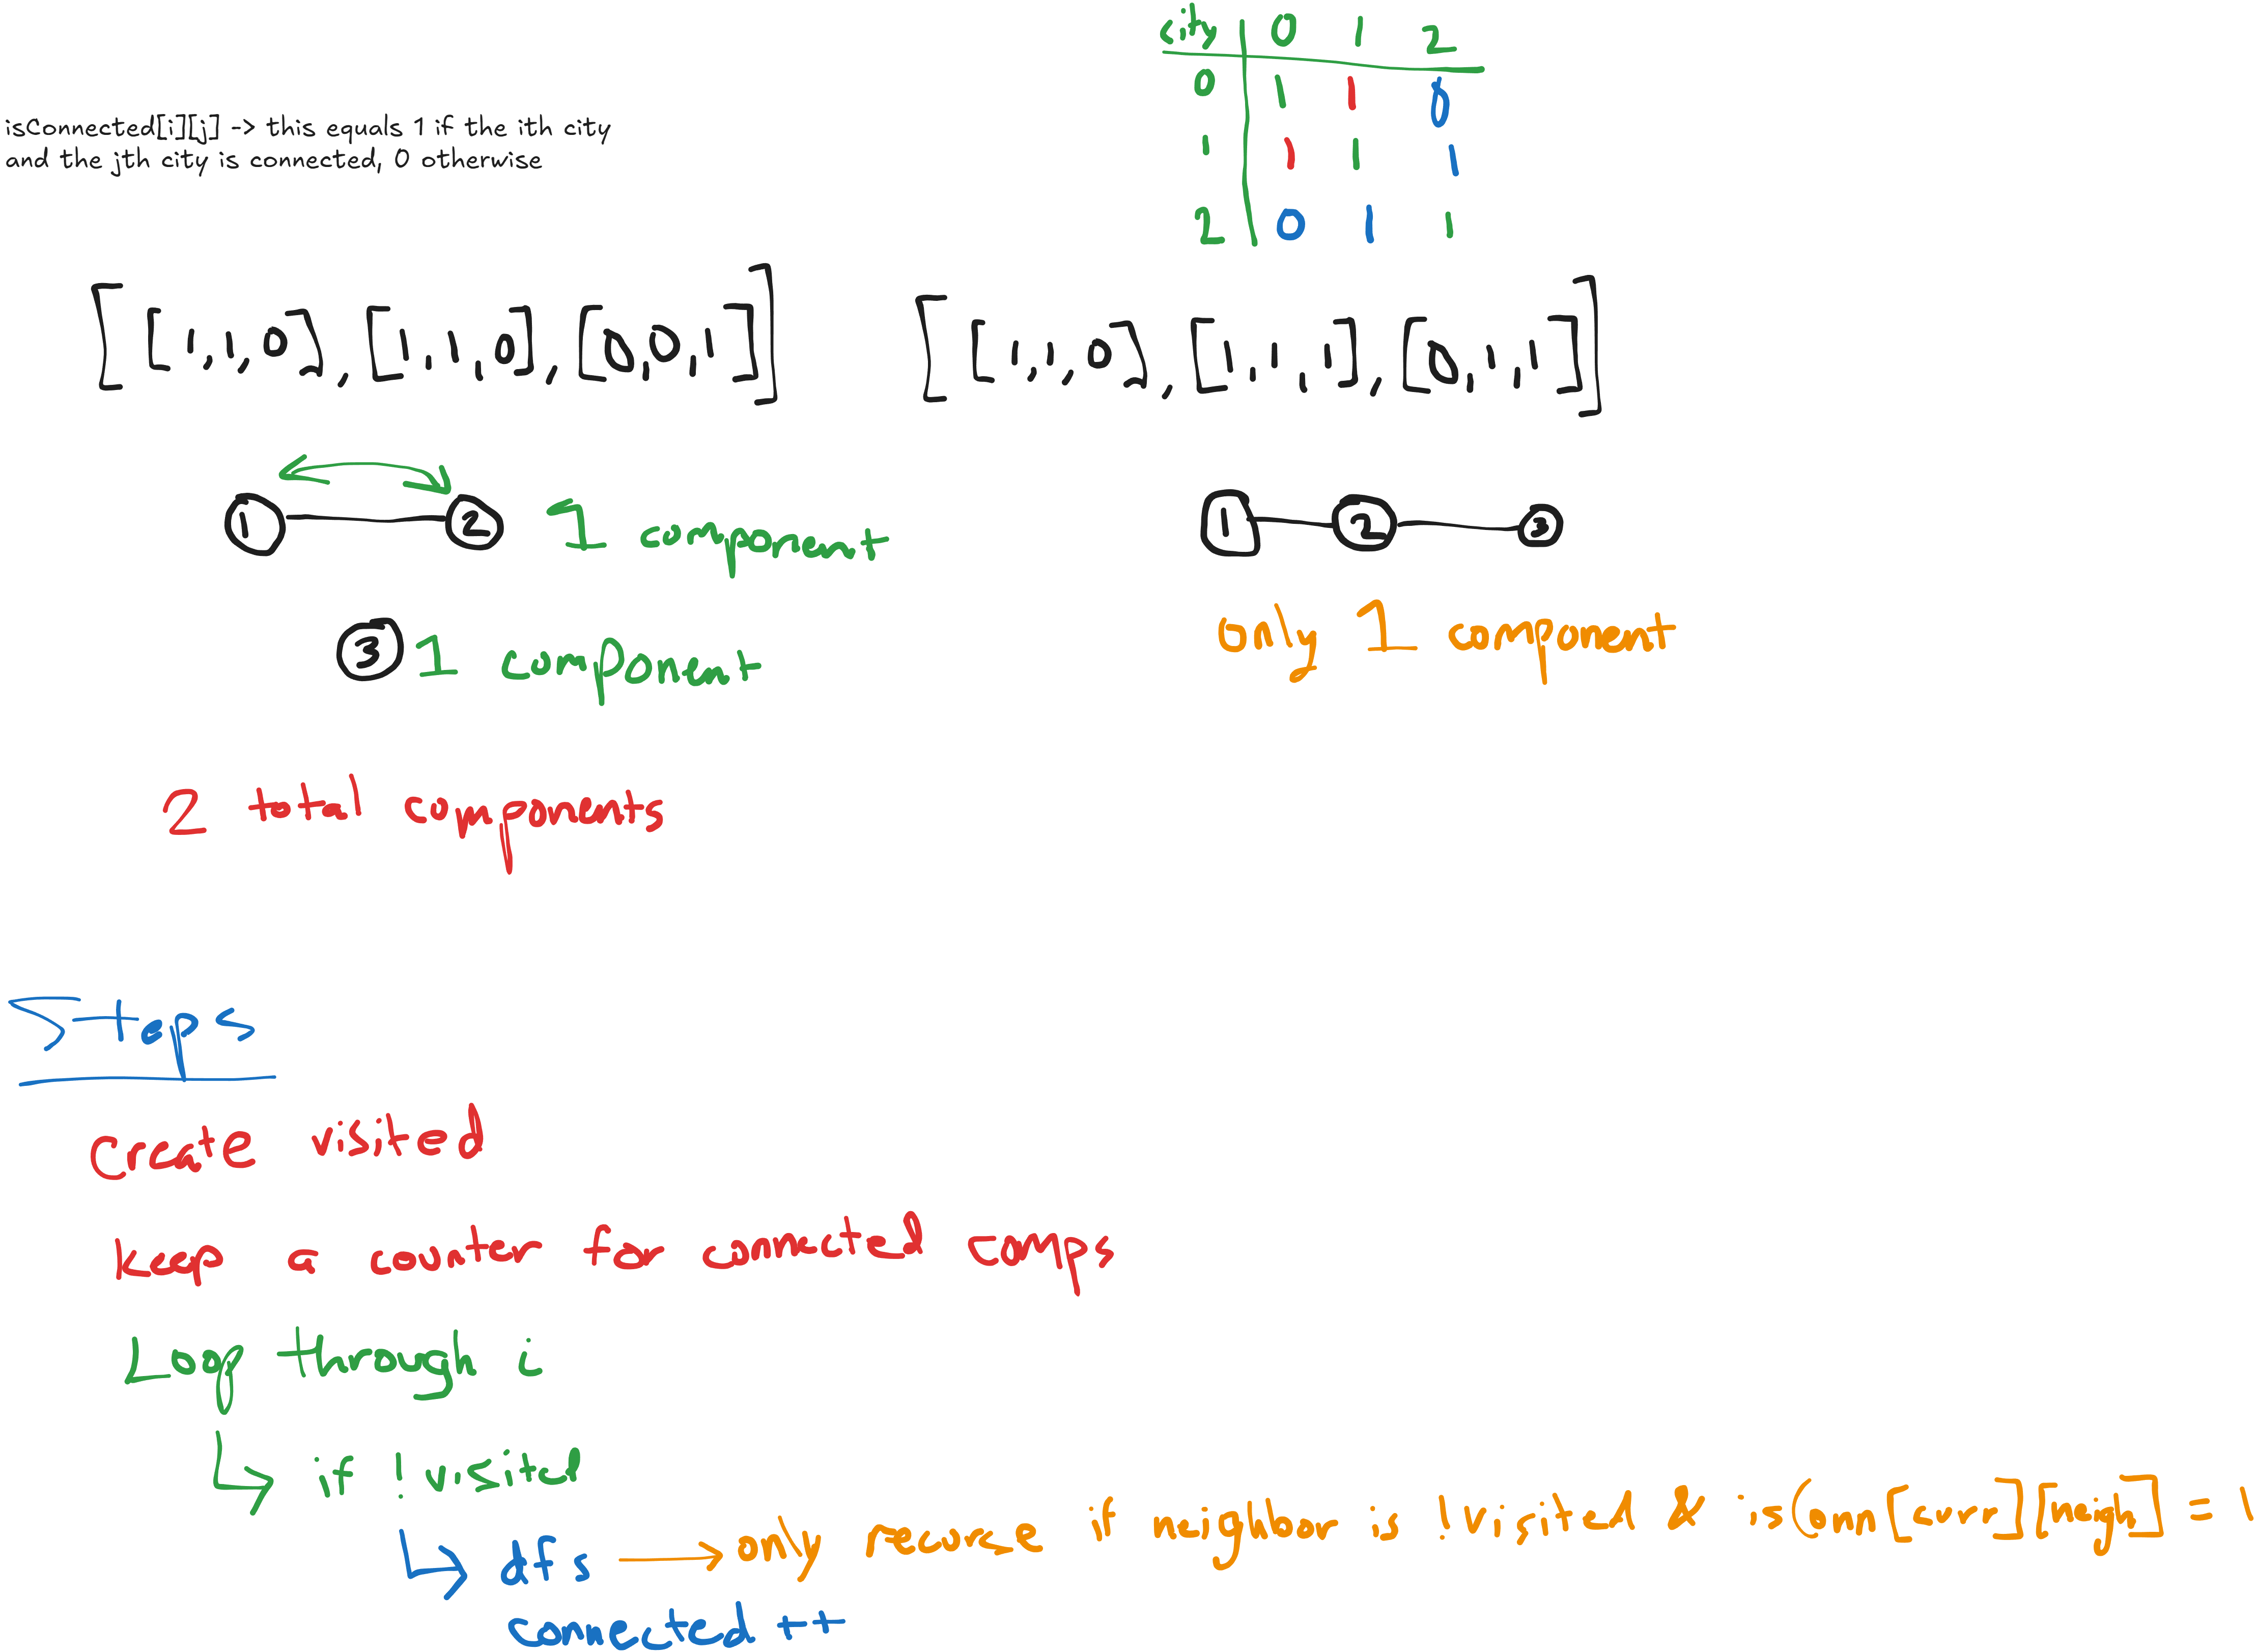 city 0 1 2
0 1 1 0
1 1 1 1
2 0 1 1
isConnected[i][j] -> this equals 1 if the ith city
and the jth city is connected, 0 otherwise
[[1,1,0],[1,1,0],[0,0,1]]
[[1,1,0],[1,1,1],[0,1,1]]
1 2 1 component
3 1 component
2 total components
1 2 3
only 1 component
Steps
Create visited
keep a counter for connected comps
Loop through i
if !visited
dfs → only recurse if neighbor is !visited & isConn[curr][neigh] = 1
connected ++